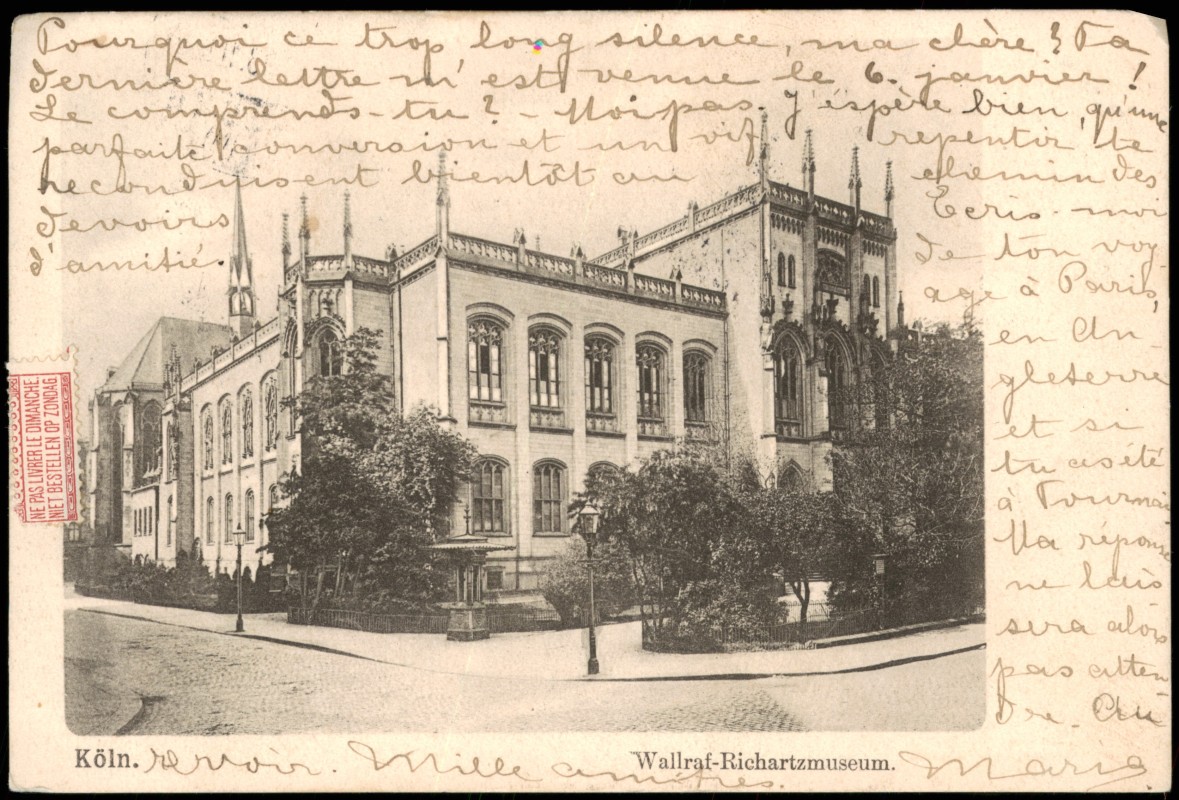 Pourquoi ce trop long silence, ma chère? Ta
dernière lettre m'est venue le 6. janvier!
Le comprends-tu? - Moi pas. J'espère bien, qu'une
parfaite conversion et un vif repentir te
reconduisent bientôt au chemin des
devoirs
d'amitié.
Ecris-moi
de ton voy-
age à Paris,
en An-
gleterre
et si
tu as été
à Tournai
Ma réponse
ne lais
sera alors
pas atten
dre. Au
revoir. Mille amitiés. Maria.
NE PAS LIVRER LE DIMANCHE.
NIET BESTELLEN OP ZONDAG.
Köln.
Wallraf-Richartzmuseum.